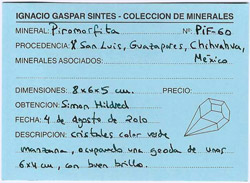 IGNACIO GASPAR SINTES - COLECCION DE MINERALES
MINERAL: Piromorfita Nº: PIF-60
PROCEDENCIA: San Luis, Guazapares, Chihuahua,
MINERALES ASOCIADOS: México
DIMENSIONES: 8x6x5 cm. PRECIO:
OBTENCION: Simon Hildred
FECHA: 4 de agosto de 2010
DESCRIPCION: cristales color verde
manzana, ocupando una geoda de unos
6x4 cm, con buen brillo.